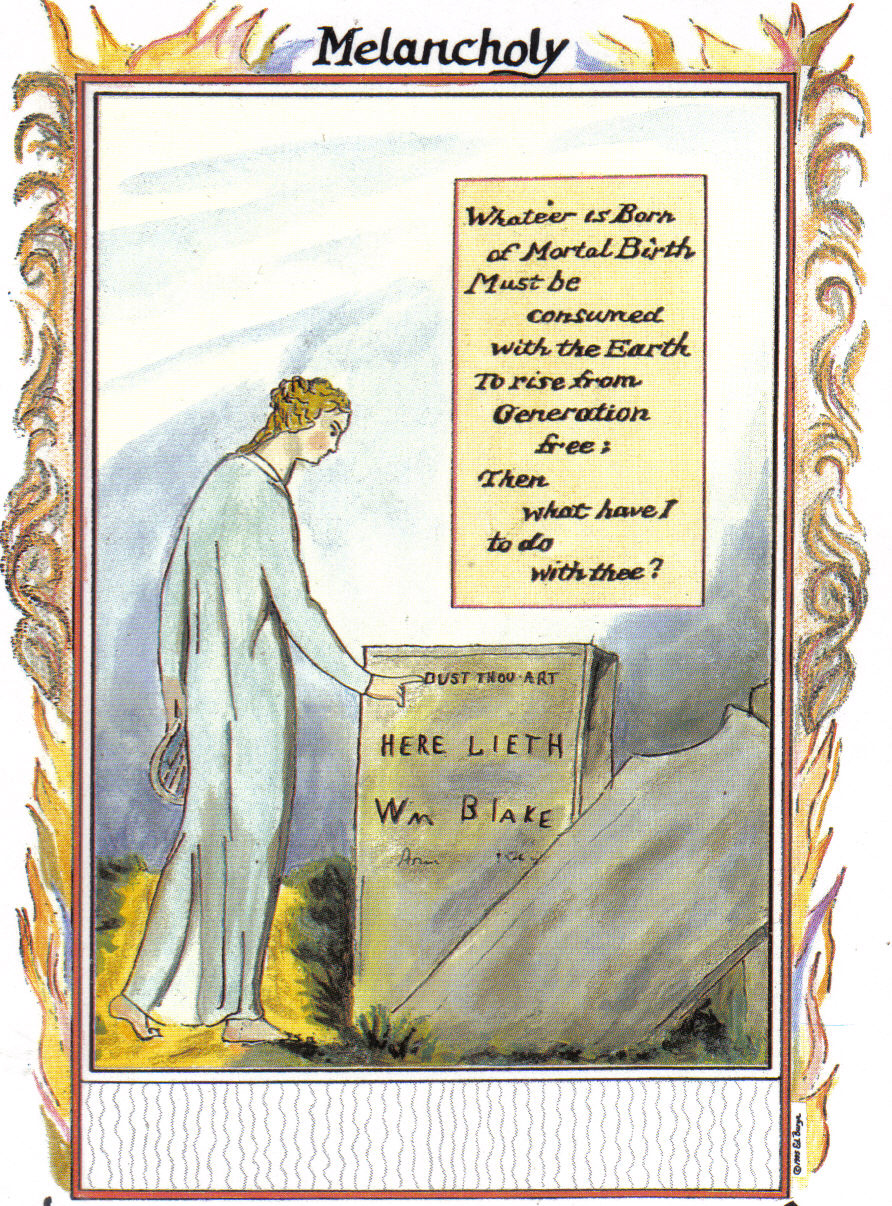 Melancholy
Whate'er is Born
of Mortal Birth
Must be
consumed
with the Earth
To rise from
Generation
free;
Then
what have I
to do
with thee?
DUST THOU·ART
HERE LIETH
Wm BlAKE